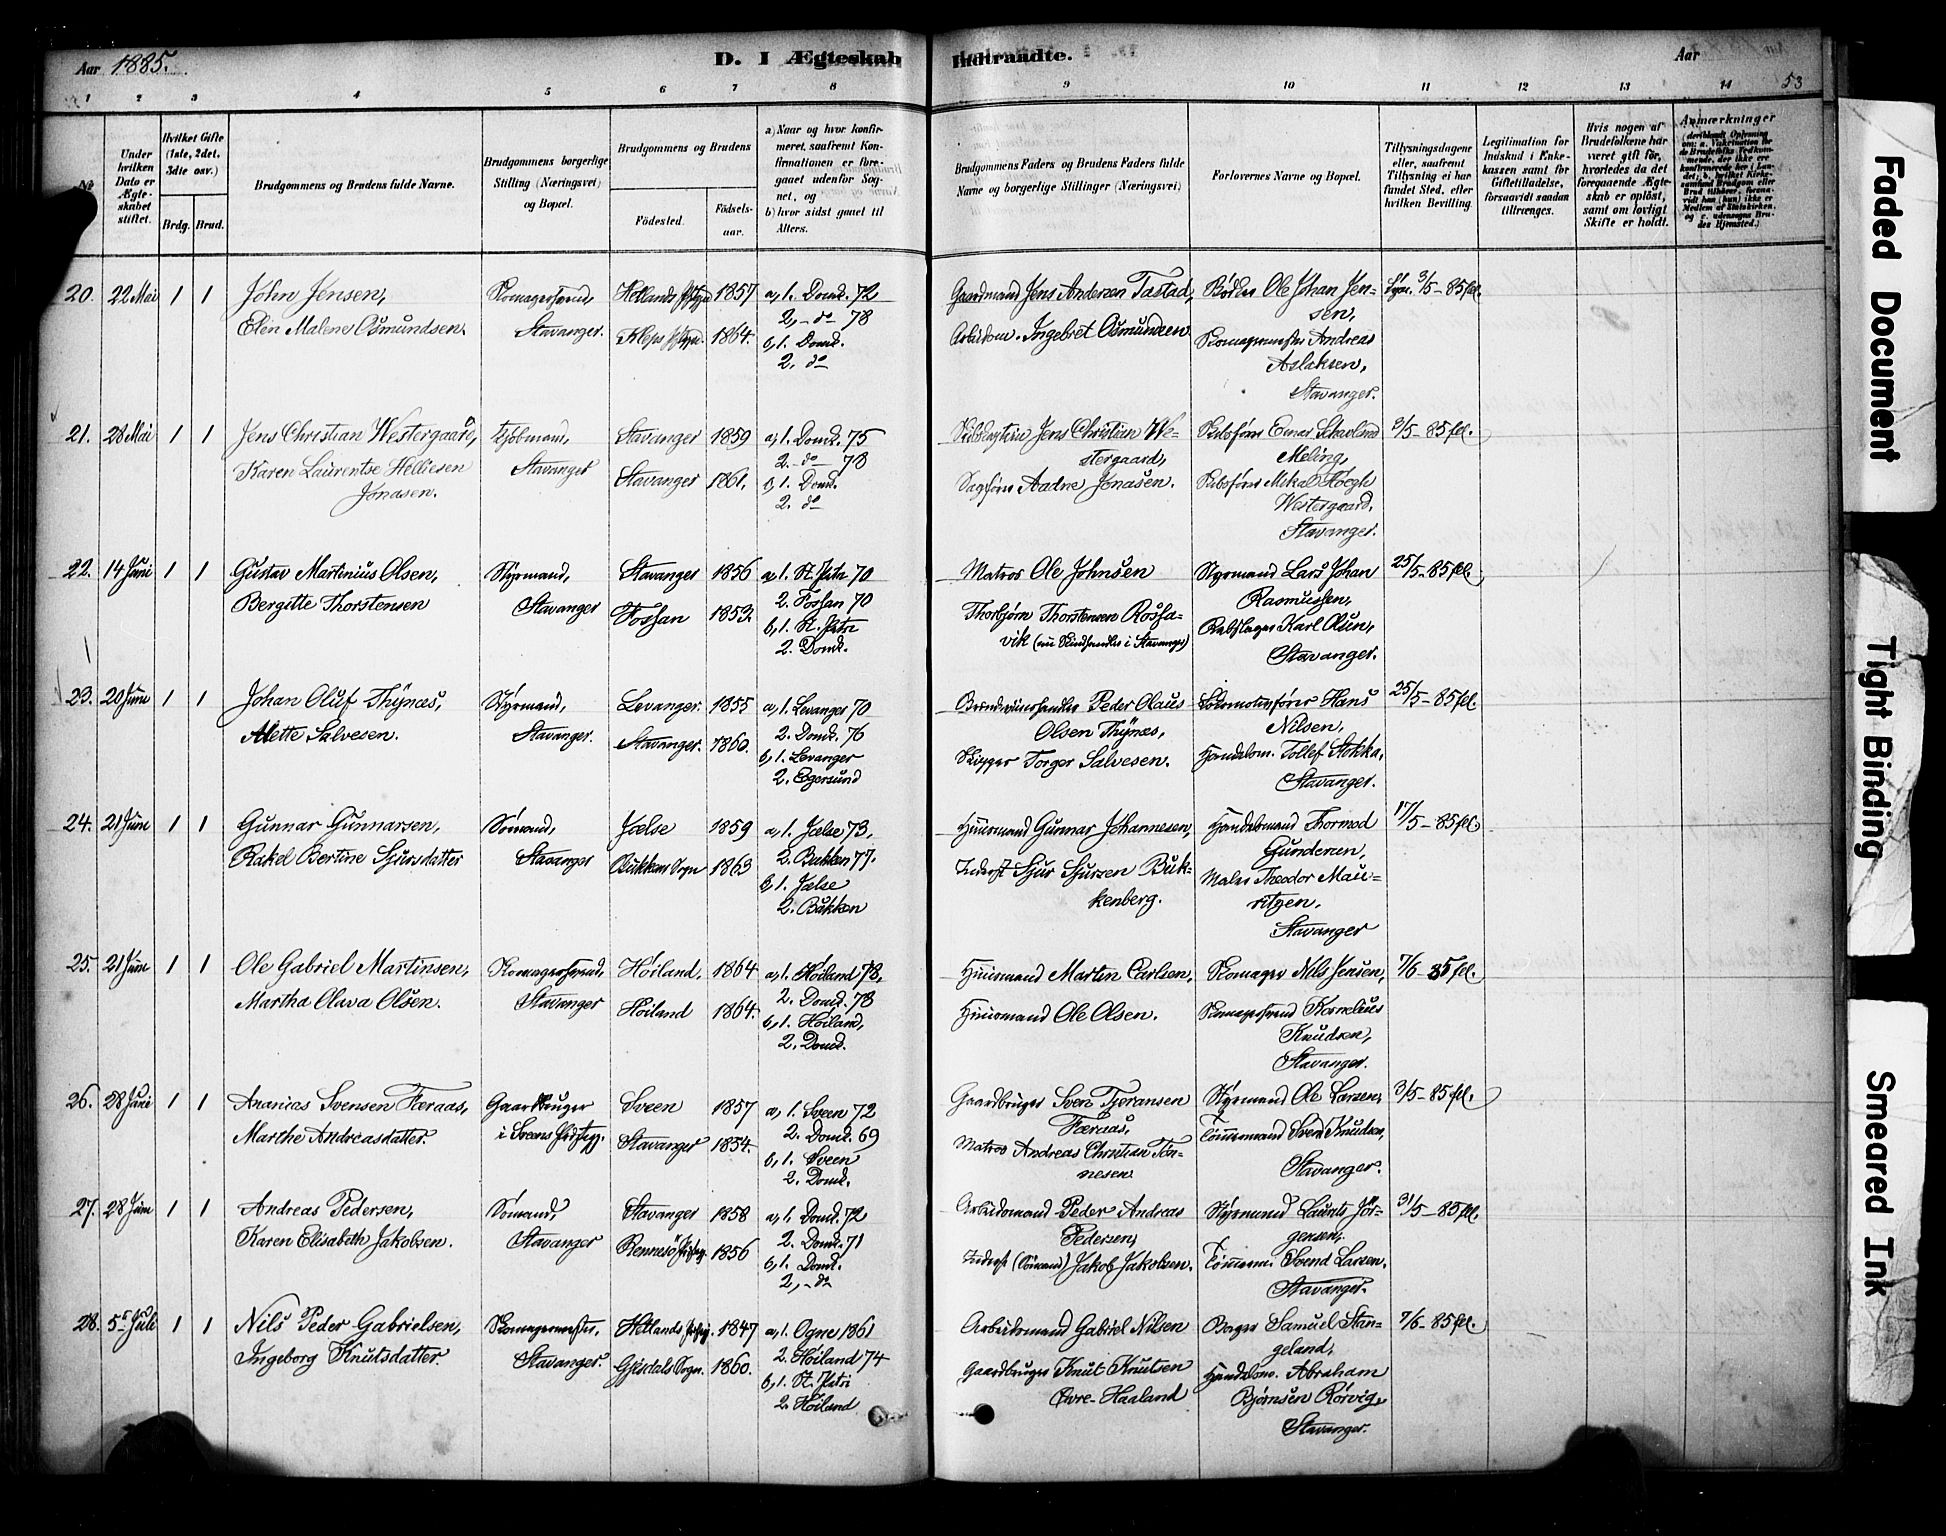 Aar 1885. D. I Ægteskab Indtraadte. Aar
53
1 2 3 4 5 6 7 8 9 10 11 12 13 14
Nr. Under hvilken Dato er Ægteskabet stiftet. Hvilket Gifte (1ste, 2det, 3die osv.) Brdg. Brud.
Brudgommens og Brudens fulde Navne.
Brudgommens borgerlige Stilling (Næringsvei) og Bopæl.
Brudgommens og Brudens Födested. Födselsaar.
a) Naar og hvor konfirmeret, saafremt Konfirmationen er foregaaet udenfor Sognet, og
b) hvor sidst gaaet til Alters.
Brudgommens Faders og Brudens Faders fulde Navne og borgerlige Stillinger (Næringsvei)
Forlovernes Navne og Bopæl.
Tillysningsdagene eller, saafremt Tillysning ei har fundet Sted, efter hvilken Bevilling.
Legitimation for Indskud i Enkekassen samt for Giftetilladelse, forsaavidt saadan tiltrænges.
Hvis nogen af Brudefolkene har været gift för, hvorledes da det foregaaende Ægteskab er oplöst, samt om lovligt Skifte er holdt.
Anmærkninger
20. 22 Mai 1 1 John Jensen, Skomagersvend, Hetlands Pstgd 1857 a, 1. Domk. 72 Gaardmand Jens Andersen Tastad, Bödker Ole Johan Jensen, 3/5-85 fel.
Elen Malene Osmundsen. Stavanger. Kleps Pstgd. 1864. 2, - do 78 Arbeidsm. Ingebret Osmundsen Skomagermester Andreas Aslaksen,
b, 1. Domk.
2. do Stavanger.
21. 28 Mai 1 1 Jens Christian Westergaard, Stavanger 1859 a, 1. Domk. 75 Jens Christian Westergaard, Skibsförer Einar Meling, 3/5-85 fel.
Karen Laurentse Helliesen Jonasen. Stavanger Stavanger 1861. 2. - do - 78 Sagförer Aadne Jonasen. Skibsförer Mikal Höegh Westergaard,
b, 1. Domk.
2. do Stavanger.
22. 14 Juni 1 1 Gustav Martinius Olsen, Styrmand, Stavanger 1856 a, 1. St. Petri 70 Matros Ole Johnsen Styrmand Lars Johan Rasmussen, 25/5-85 fel.
Bergitte Thorstensen Stavanger Fossan 1853. 2. Fossan 70 Thorbjörn Thorstensen Rossavik (nu Skindhandler i Stavanger) Rebslager Karl Olsen,
b, 1. St. Petri
2. Domk. Stavanger.
23. 20 Juni 1 1 Johan Oluf Thynæs, Styrmand, Levanger 1855 a, 1. Levanger 70 Peder Olaus Olsen Thynæs, Lokomotivförer Hans Nilsen, 25/5-85 fel.
Alette Salvesen. Stavanger. Stavanger. 1860. 2. Domk. 76 Skipper Torger Salvesen. Handelsm. Tollef Stokka,
b, 1. Levanger
2. Egersund Stavanger.
24. 21 Juni 1 1 Gunnar Gunnarsen, Sömand, Jælse 1859 a, 1. Jælse 73, Huusmand Gunnar Johannesen, Handelsmand Thormod Gundersen, 17/5-85 fel.
Rakel Bertine Sjursdatter Stavanger Bukken Sogn 1863 2. Bukken 77. Inderst Sjur Sjursen Bukkenberg. Maler Theodor Mauritzen,
b, 1. Jælse
2. Bukken Stavanger
25. 21 Juni 1 1 Ole Gabriel Martinsen, Skomagersvend, Höiland, 1864 a, 1. Höiland 78, Huusmand Martin Carlsen, Skomager Nils Jensen, 7/6-85 fel.
Martha Olava Olsen. Stavanger Höiland 1864. 2. Domk. 78 Huusmand Ole Olsen. Skomagersvend Kornelius Knudsen,
b, 1. Höiland,
2. Domk. Stavanger.
26. 28 Juni 1 1 Ananias Svensen Færaas, Gaardbruger Sveen 1857 a, 1. Sveen 72 Gaardbruger Sven Færaas, Styrmand Ole Larsen, 3/5-85 fel.
Marthe Andreasdatter. i Sveens Prstgj. Stavanger 1854. 2. Domk. 69 Matros Andreas Christian Tönnesen Tömmermand Sven Knudsen,
b, 1. Sveen
2. Domk. Stavanger.
27. 28 Juni 1 1 Andreas Pedersen, Sömand, Stavanger 1858 a, 1. Domk. 72 Arbeidsmand Peder Andreas Pedersen, Styrmand Laurits Jörgensen, 31/5-85 fel.
Karen Elisabeth Jakobsen. Stavanger Rennesö Prstgj. 1856 2. Domk. 71 Inderst (Sömand) Jakob Jakobsen. Tömmerm. Svend Larsen,
b, 1. Domk.
2, - do Stavanger.
28. 5te Juli 1 1 Nils Peder Gabrielsen, Skomagermester, Hetlands Prstgj. 1847 a, 1. Ogne 1861 Arbeidsmand Gabriel Nilsen Borger Samuel Stangeland, 7/6-85 fel.
Ingeborg Knutsdatter. Stavanger. Gjesdals Sogn. 1860. 2. Höiland 74 Gaardbruger Knut Knutsen Övre-Haaland Handelsm. Abraham Bjørnsen Rörvig,
b, 1. St. Petri
2. Höiland Stavanger.
Faded Document
Tight Binding
Smeared Ink